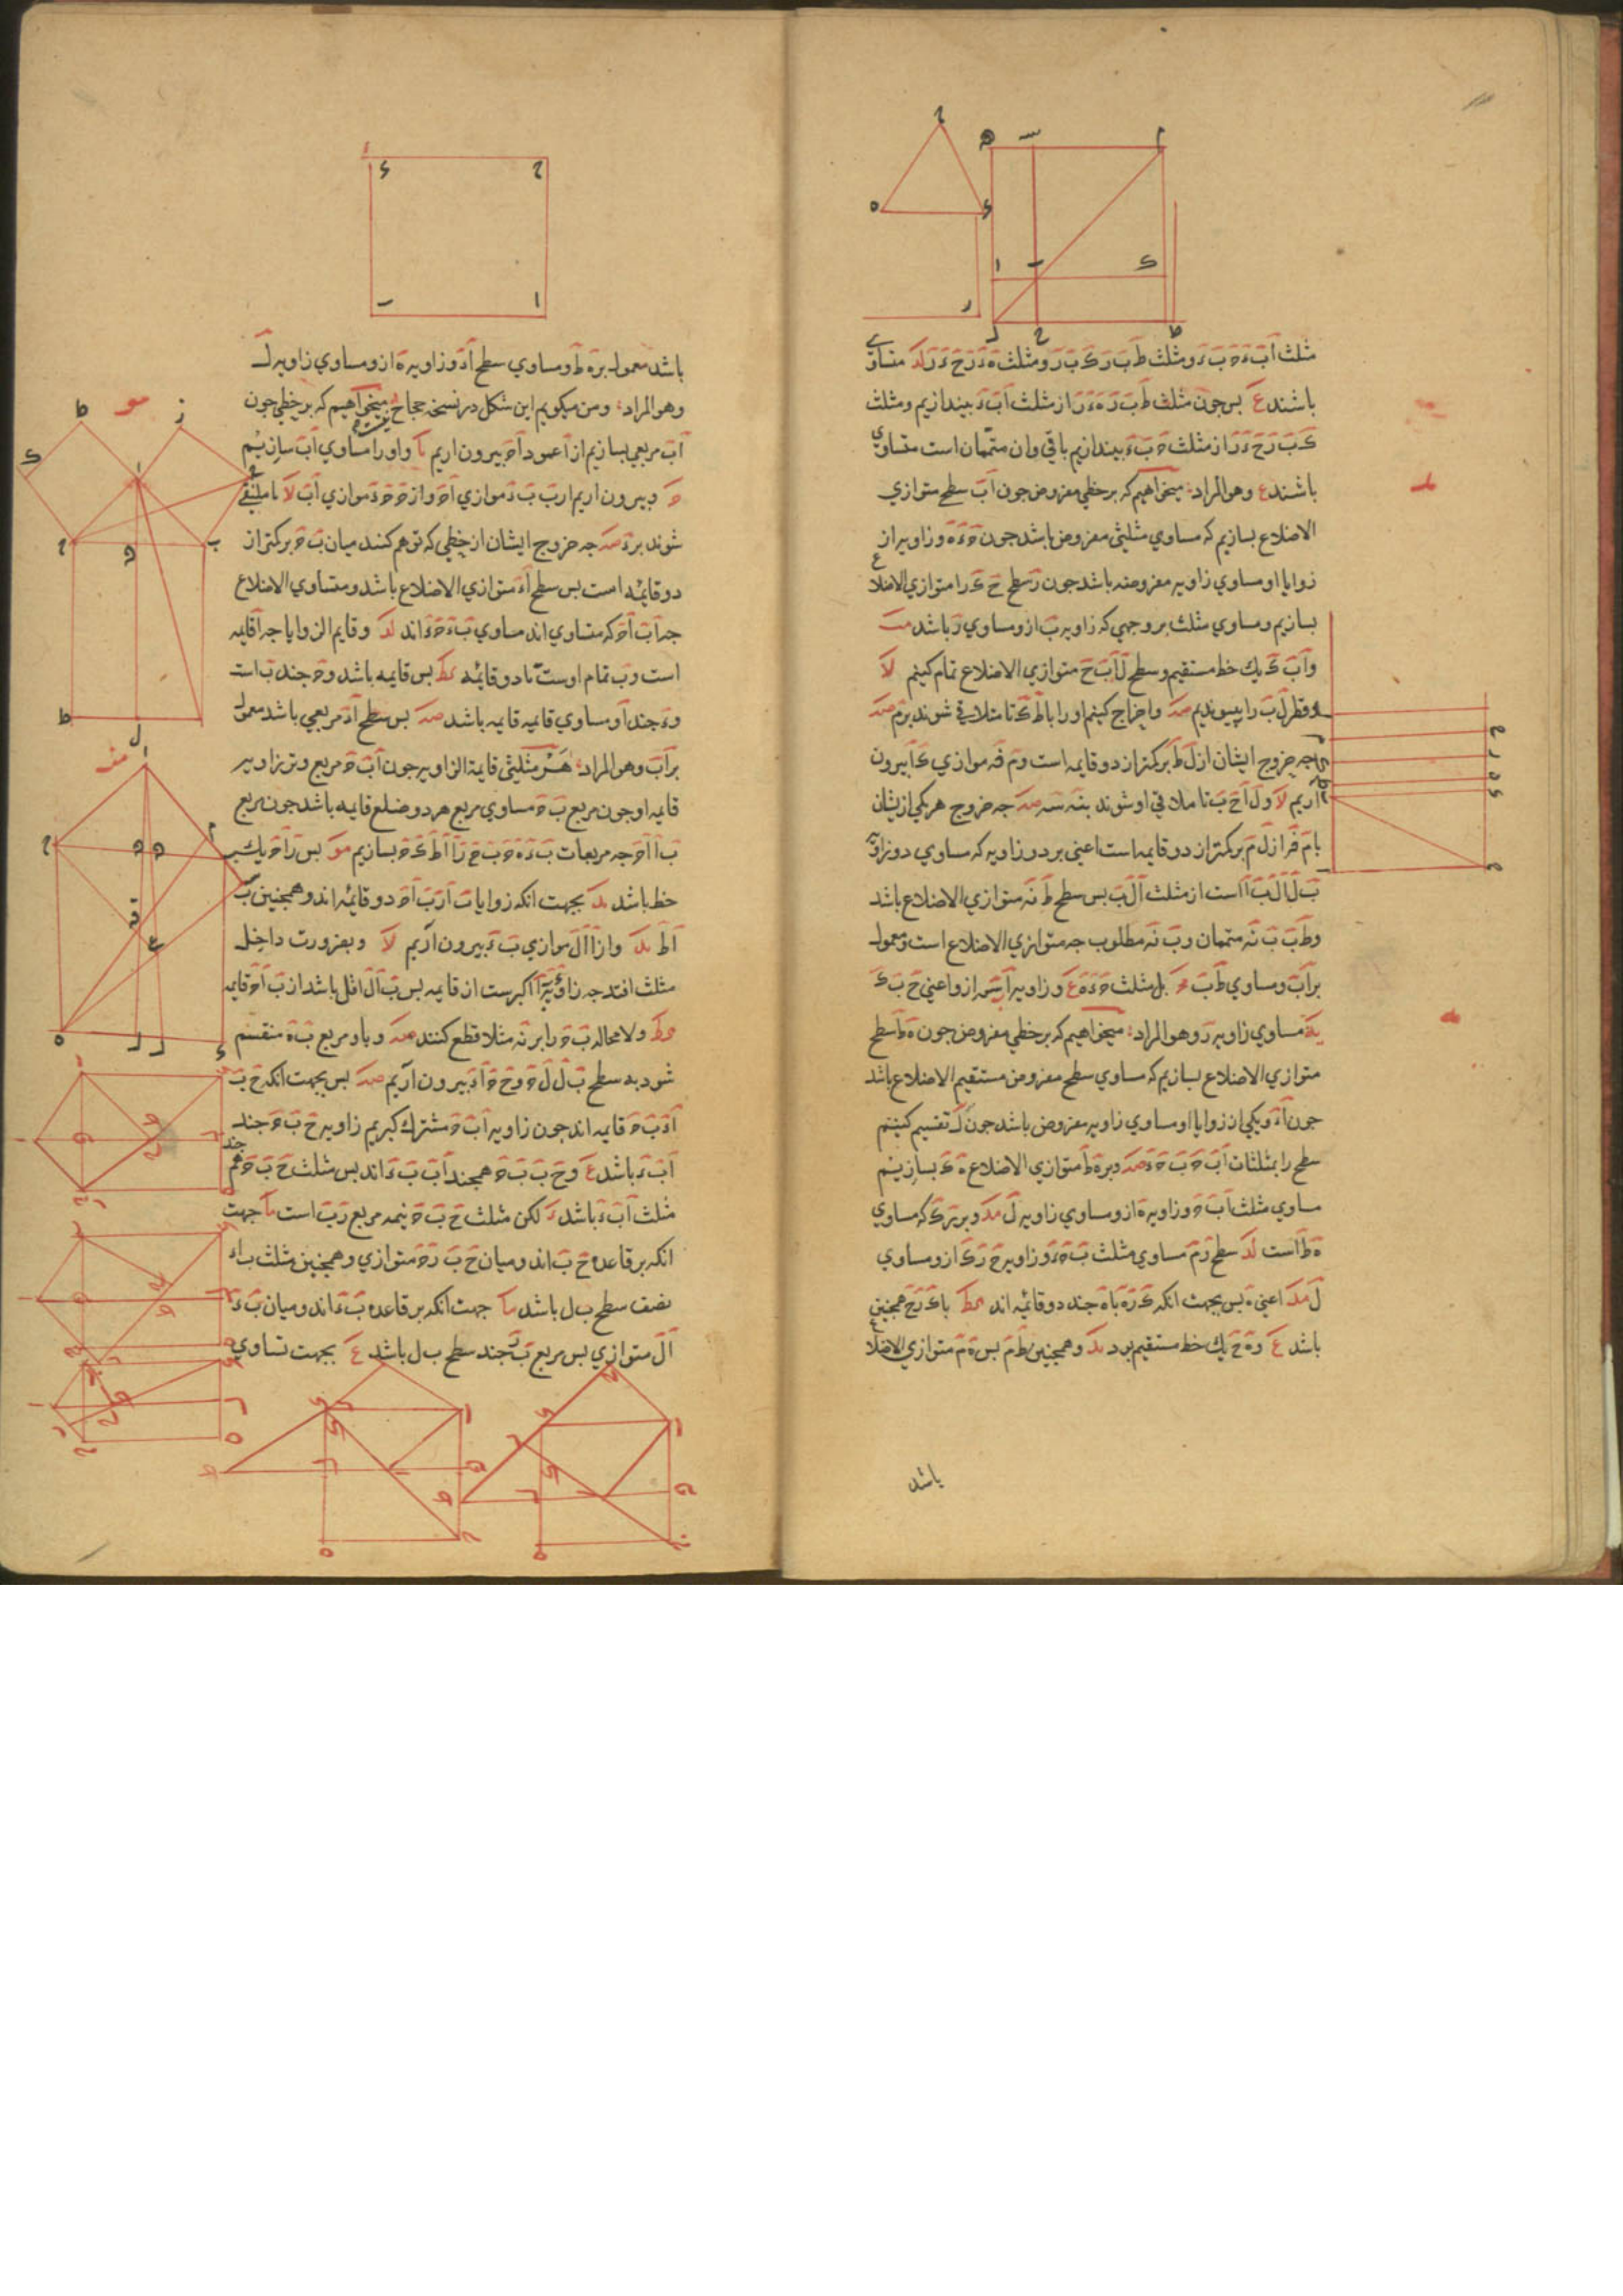 مثلث اَبَ ءَ حَ بَ ءَ و مثلث طَ بَ رَ كَ بَ رَ و مثلث هَ ءَ رَ حَ ءَ رَ لد متساوی
باشند ع بس جون مثلث طَ بَ رَ هَ ءَ رَ از مثلث اَبَ ءَ بیندازیم و مثلث
كَ بَ رَ حَ ءَ رَ از مثلث حَ بَ ءَ بیندازیم باقی وان متممان است متساوی
باشند ع وهو المراد میخواهیم که بر خطی مفروض جون اَبَ سطح متوازی
الاضلاع بسازیم که مساوی مثلثی مفروض باشد جون حَ ءَ هَ و زاویه از
زوایا او مساوی زاویه مفروضه باشد جون رَ سطح حَ كَ را متوازی الاضلاع
بسازیم و مساوی مثلث بر وجهی که زاویه بَ ازو مساوی رَ باشد مب
و اَبَ كَ یك خط مستقیم و سطح لَ اَبَ حَ متوازی الاضلاع تمام کنیم لا
و قطر لَ بَ را بپیوندیم صه و اخراج کنیم او را با طَ كَ تا متلاقی شوند برم صه
جه خروج ایشان از لَ طَ بر کمتر از دو قایمه است و مَ فَه موازی ءَ اَ بیرون
آریم لا و لَ اَ حَ بَ تا ملاقی او شوند بنَه سَه صه جه خروج هر یکی ازیشان
با مَ فَ از لَ مَ بر کمتر از دو قایمه است اعنی بر دو زاویه که مساوی دو زاویه
بَ لَ اَ لَ بَ اَ است از مثلث اَلَبَ بس سطح طَ نَه متوازی الاضلاع باشد
و طَ بَ بَ نَه متممان و بَ نَه مطلوب جه متوازی الاضلاع است و معمول
بر اَبَ و مساوی طَ بَ بل مثلث حَ ءَ هَ ع و زاویه اَ بَ سَه ازو اعنی حَ بَ كَ
یه مساوی زاویه رَ وهو المراد میخواهیم که بر خطی مفروض جون هَ طَ سطح
متوازی الاضلاع بسازیم که مساوی سطح مفروض مستقیم الاضلاع باشد
جون اَ ءَ و یکی از زوایا او مساوی زاویه مفروض باشد جون لَ تقسیم کنیم
سطح را بمثلثات اَبَ حَ بَ حَ ءَ صه و بر هَ طَ متوازی الاضلاع هَ كَ بسازیم
مساوی مثلث اَبَ حَ و زاویه هَ ازو مساوی زاویه لَ مد و بر رَ كَ که مساوی
هَ طَ است لد سطح رَ مَ مساوی مثلث بَ حَ ءَ و زاویه حَ رَ كَ ازو مساوی
لَ مد اعنی هَ بس بجهت انکه كَ رَ هَ با هَ جند دو قایمه اند كط با كَ رَ حَ همجنین
باشد ع و هَ حَ یك خط مستقیم بود ید و همجنین طَ مَ بس هَ مَ متوازی الاضلاع
باشد
باشد معمول بر هَ طَ و مساوی سطح اَ ءَ و زاویه هَ ازو مساوی زاویه لَ
وهو المراد و من میکویم این شکل در نسخه حجاج میخواهیم که بر خطی جون
اَبَ مربعی بسازیم از اَ عمود اَ حَ بیرون اریم یا و او را مساوی اَبَ سازیم
و بیرون اریم از بَ بَ ءَ موازی اَ حَ و از حَ حَ ءَ موازی اَبَ لا تا ملتقی
شوند بر ءَ صه جه خروج ایشان از خطی که توهم کنند میان بَ حَ بر کمتر از
دو قایمه است بس سطح اَ ءَ متوازی الاضلاع باشد و متساوی الاضلاع
جه اَبَ اَ حَ که متساوی اند مساوی بَ ءَ حَ ءَ اند لد و قایم الزوایا جه اَ قایمه
است و بَ تمام اوست تا دو قایمه كط بس قایمه باشد و حَ جند بَ است
و ءَ جند اَ و مساوی قایمه قایمه باشد صه بس سطح اَ ءَ مربعی باشد معمول
بر اَبَ وهو المراد هر مثلثی قایمة الزاویه جون اَبَ حَ مربع وتر زاویه
قایمه او جون مربع بَ حَ مساوی مربع هر دو ضلع قایمه باشد جون مربع
بَ اَ اَ حَ جه مربعات بَ ءَ هَ حَ بَ حَ رَ اَ اَ طَ كَ حَ بسازیم مو بس رَ اَ حَ یك
خط باشد ید بجهت انکه زوایا بَ اَ رَ بَ اَ حَ دو قایمه اند و همجنین بَ
اَ طَ ید و از اَ اَ لَ موازی بَ ءَ بیرون اریم لا و بضرورت داخل
مثلث افتد جه زاویه اکبرست از قایمه بس بَ اَ لَ اقل باشد از بَ اَ حَ قایمه
كط و لا محاله بَ حَ را بر نَه مثلا قطع کنند صه و باو مربع بَ هَ منقسم
شود بدو سطح بَ لَ لَ حَ و حَ حَ اَ ءَ بیرون اریم صه بس بجهت انکه حَ بَ
اَ ءَ بَ حَ قایمه اند جون زاویه اَبَ حَ مشترك کیریم زاویه حَ بَ حَ جند
اَبَ ءَ باشد ع و حَ بَ بَ حَ همجند اَبَ بَ ءَ اند بس مثلث حَ بَ حَ هم
مثلث اَبَ ءَ باشد ء لکن مثلث حَ بَ حَ نیمه مربع رَ بَ است ما جهت
انکه بر قاعده حَ بَ اند و میان حَ بَ رَ حَ متوازی و همجنین مثلث ب اء
نصف سطح ب ل باشد ما جهت انکه بر قاعده بَ ءَ اند و میان بَ ءَ
اَلَ متوازی بس مربع بَ رَ جند سطح ب ل باشد ع بجهت تساوی